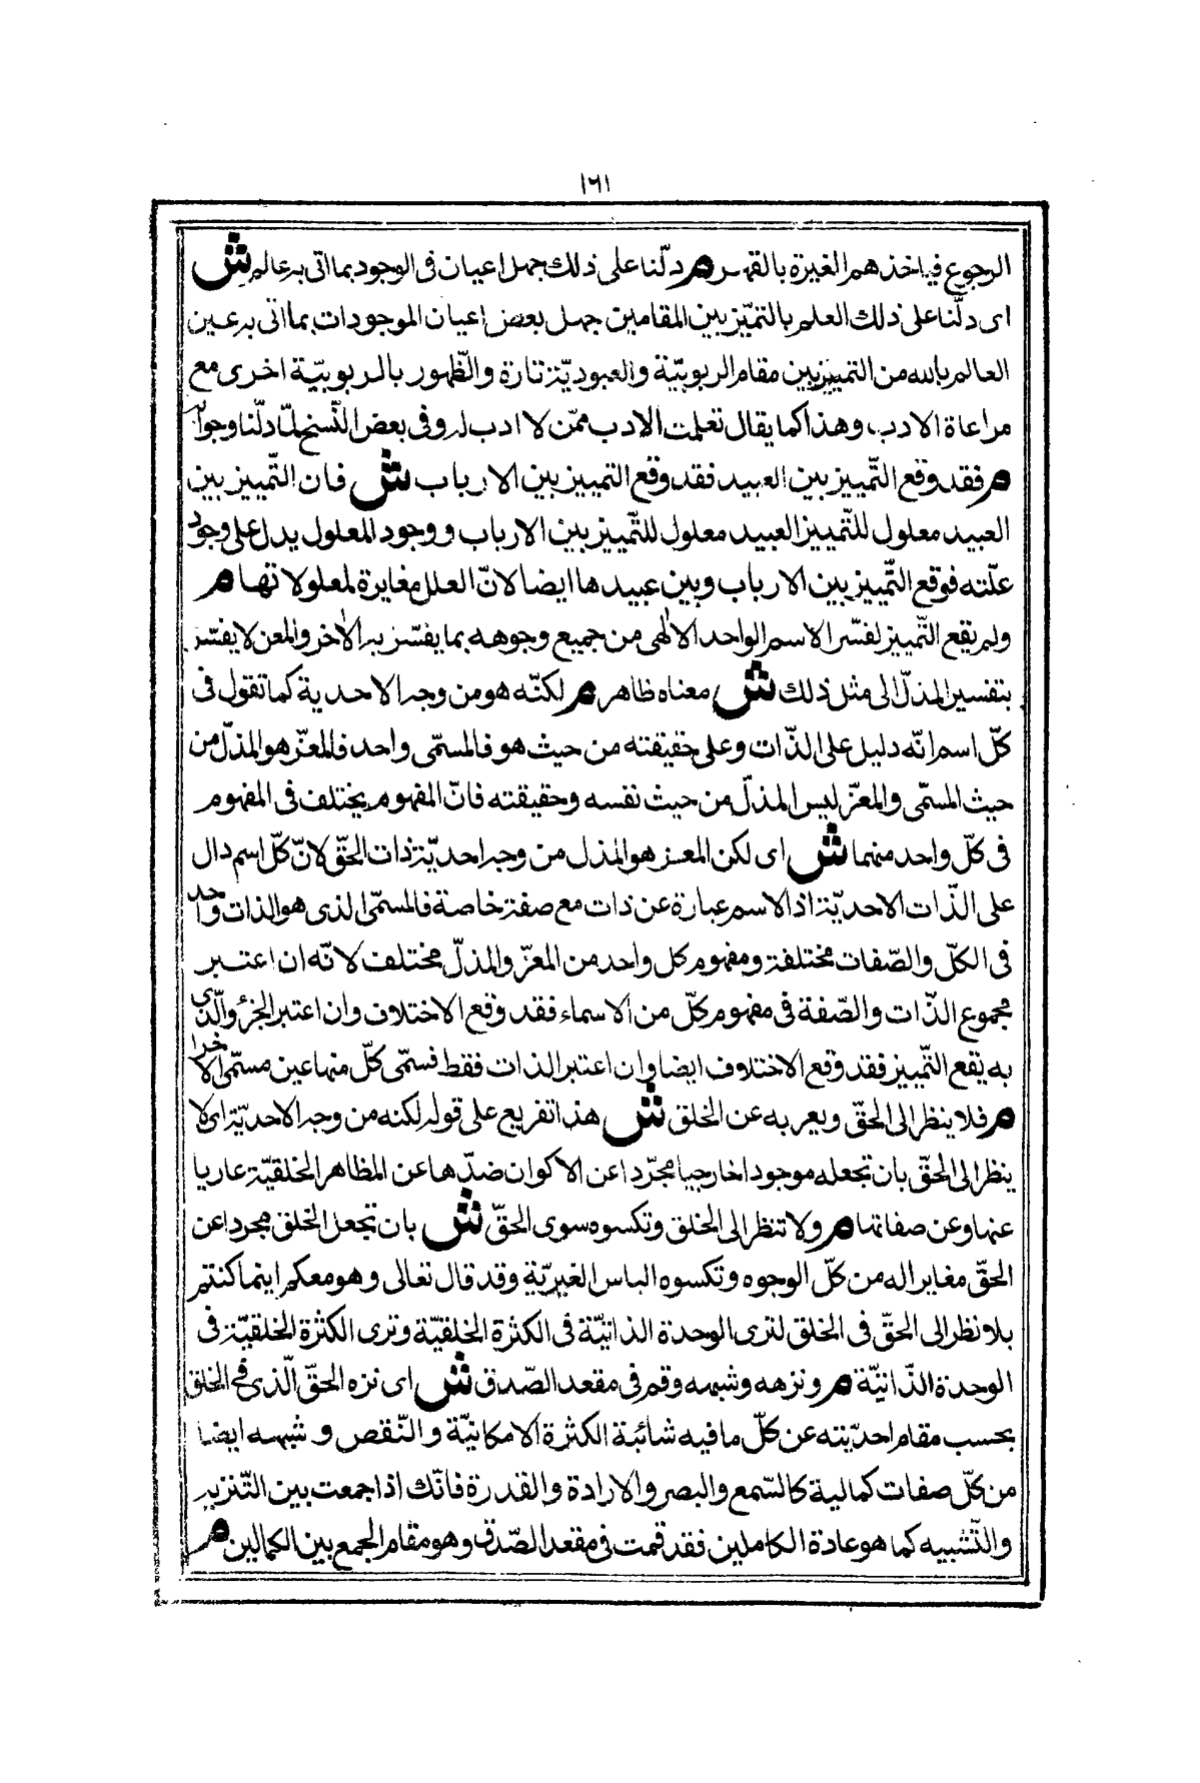 ١٦١
الرجوع فياخذهم الغيرة بالقهر م دلّنا على ذلك جهل اعيان فى الوجود بما اتى به عالم ش
اى دلّنا على ذلك العلم بالتميّز بين المقامين جهل بعض اعيان الموجودات بما اتى به عين
العالم بالله من التمييز بين مقام الربوبيّة والعبوديّة تارة والظّهور بالربوبيّة اخرى مع
مراعاة الادب وهذا كما يقال تعلمت الادب ممّن لا ادب له وفى بعض النّسخ لمّا دلّنا وجوابه
م فقد وقع التّمييز بين العبيد فقد وقع التمييز بين الارباب ش فان التّمييز بين
العبيد معلول للتّمييز العبيد معلول للتّمييز بين الارباب ووجود المعلول يدل على وجود
علّته فوقع التّمييز بين الارباب وبين عبيدها ايضا لانّ العلل مغايرة لمعلولاتها م
ولم يقع التّمييز لفسّر الاسم الواحد الالٰهى من جميع وجوهه بما يفسّر به الاٰخر والمعز لا يفسّر
بتفسير المذلّ الى مثل ذلك ش معناه ظاهر م لكنّه هو من وجه الاحدية كما تقول فى
كلّ اسم انّه دليل على الذّات وعلى حقيقته من حيث هو فالمسمّى واحد فالمعزّ هو المذلّ من
حيث المسمّى والمعزّ ليس المذلّ من حيث نفسه وحقيقته فانّ المفهوم يختلف فى المفهوم
فى كلّ واحد منهما ش اى لكن المعز هو المذل من وجه احديّة ذات الحقّ لانّ كلّ اسم دال
على الذّات الاحديّة اذ الاسم عبارة عن ذات مع صفة خاصة فالمسمّى الذى هو الذات واحد
فى الكلّ والصّفات مختلفة ومفهوم كل واحد من المعزّ والمذلّ مختلف لانّه ان اعتبر
مجموع الذّات والصّفة فى مفهوم كلّ من الاسماء فقد وقع الاختلاف وان اعتبر الجزء والّذى
به يقع التّمييز فقد وقع الاختلاف ايضا وان اعتبر الذات فقط فسمّى كلّ منها عين مسمّى الاٰخر
م فلا ينظر الى الحقّ ويعر به عن الخلق ش هذا تفريع على قوله لكنه من وجه الاحديّة اى لا
ينظر الى الحقّ بان تجعله موجودا خارجيا مجرّدا عن الاكوان ضدّها عن المظاهر الخلقيّة عاريا
عنها وعن صفاتها م ولا تنظر الى الخلق وتكسوه سوى الحقّ ش بان تجعل الخلق مجردا عن
الحقّ مغايرا له من كلّ الوجوه وتكسوه الباس الغيريّة وقد قال تعالى وهو معكم اينما كنتم
بلا نظر الى الحقّ فى الخلق لترى الوحدة الذاتيّة فى الكثرة الخلقيّة وترى الكثرة الخلقيّة فى
الوحدة الذّاتيّة م ونزهه وشبهه وقم فى مقعد الصّدق ش اى نزه الحقّ الّذى فى الخلق
بحسب مقام احديّته عن كلّ ما فيه شائبة الكثرة الامكانيّة والنّقص وشبهه ايضا
من كلّ صفات كمالية كالسّمع والبصر والارادة والقدرة فانّك اذا جمعت بين التّنزيه
والتّشبيه كما هو عادة الكاملين فقد قمت فى مقعد الصّدق وهو مقام الجمع بين الكمالين م